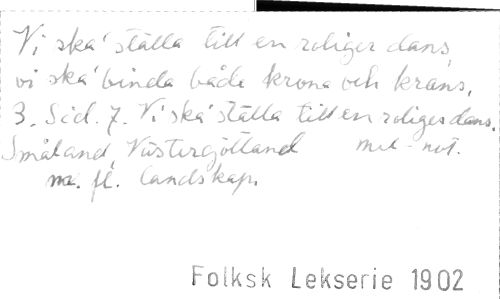 Vi ska' ställa till en roliger dans
vi ska' binda både krona och krans.
3. Sid. 7. Vi ska' ställa till en roliger dans.
Småland, Västergötland med not.
m. fl. landskap.
Folksk Lekserie 1902